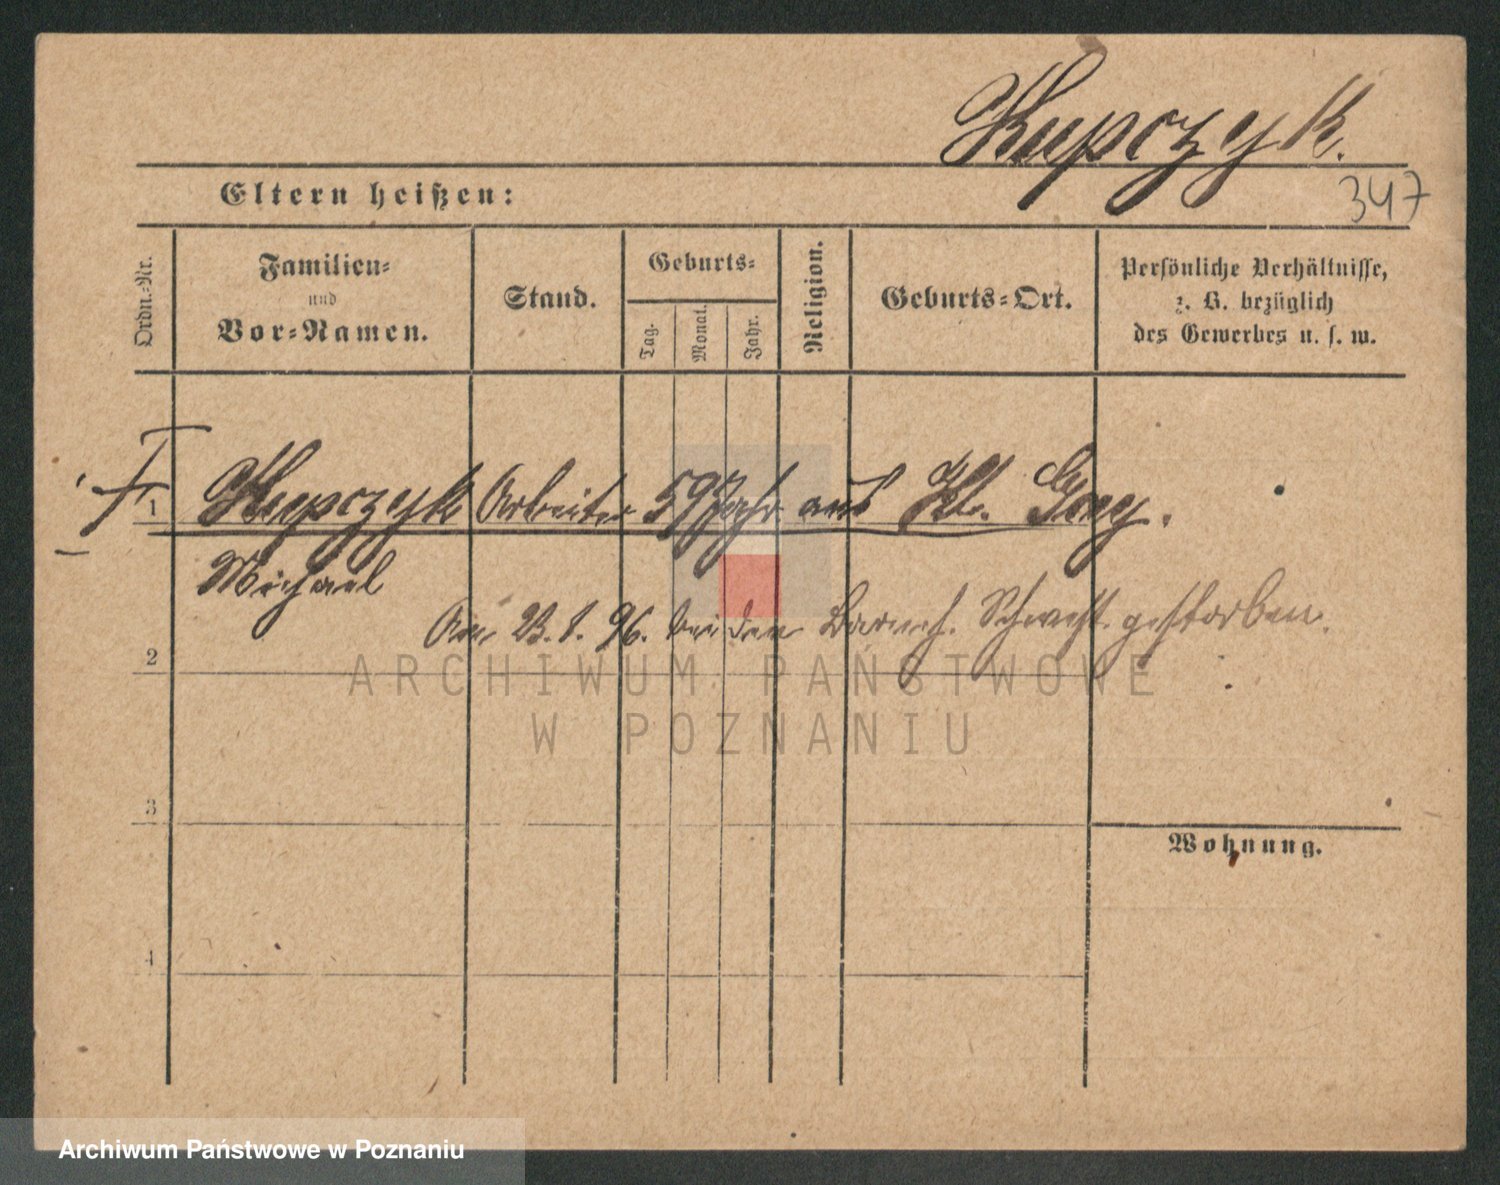 Kupczyk.
347
Eltern heißen:
Ordn.-Nr.
Familien-
und
Vor-Namen.
Stand.
Geburts-
Tag.
Monat.
Jahr.
Religion.
Geburts-Ort.
Persönliche Verhältnisse,
z. B. bezüglich
des Gewerbes u. s. w.
1 Kupczyk Arbeiter 59 Jahr aus Kl.
Michael
Am 23. 1. 96. bei den Barmh. Schwest. gestorben.
2
ARCHIWUM PAŃSTWOWE
W POZNANIU
3
Wohnung.
4
Archiwum Państwowe w Poznaniu